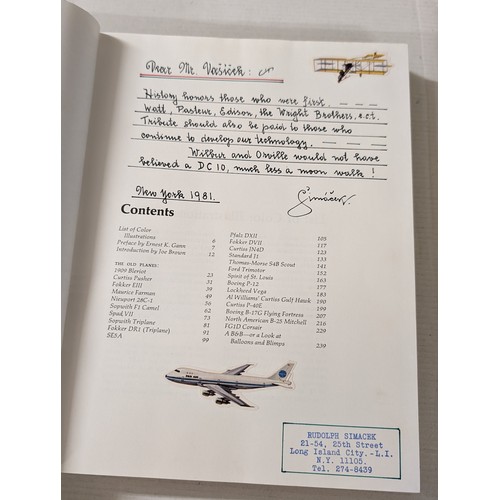 Dear Mr. Vašíček:
History honors those who were first. _ _ _
Watt, Pasteur, Edison, the Wright Brothers, e.c.t.
Tribute should also be paid to those who
continue to develop our technology. _ _ _
Wilbur and Orville would not have
believed a DC10, much less a moon walk!
New York 1981. Šimáček.
Contents
List of Color
Illustrations 6
Preface by Ernest K. Gann 7
Introduction by Joe Brown 12
THE OLD PLANES:
1909 Bleriot 23
Curtiss Pusher 31
Fokker EIII 39
Maurice Farman 49
Nieuport 28C-1 56
Sopwith F1 Camel 62
Spad VII 73
Sopwith Triplane 81
Fokker DR1 (Triplane) 91
SE5A 99
Pfalz DXII 105
Fokker DVII 117
Curtiss JN4D 123
Standard J1 133
Thomas-Morse S4B Scout 141
Ford Trimotor 152
Spirit of St. Louis 163
Boeing P-12 177
Lockheed Vega 183
Al Williams' Curtiss Gulf Hawk 190
Curtiss P-40E 199
Boeing B-17G Flying Fortress 207
North American B-25 Mitchell 216
FG1D Corsair 229
A&B—or a Look at
Balloons and Blimps 239
RUDOLPH SIMACEK
21-54, 25th Street
Long Island City.-L.I.
N.Y. 11105.
Tel. 274-8439